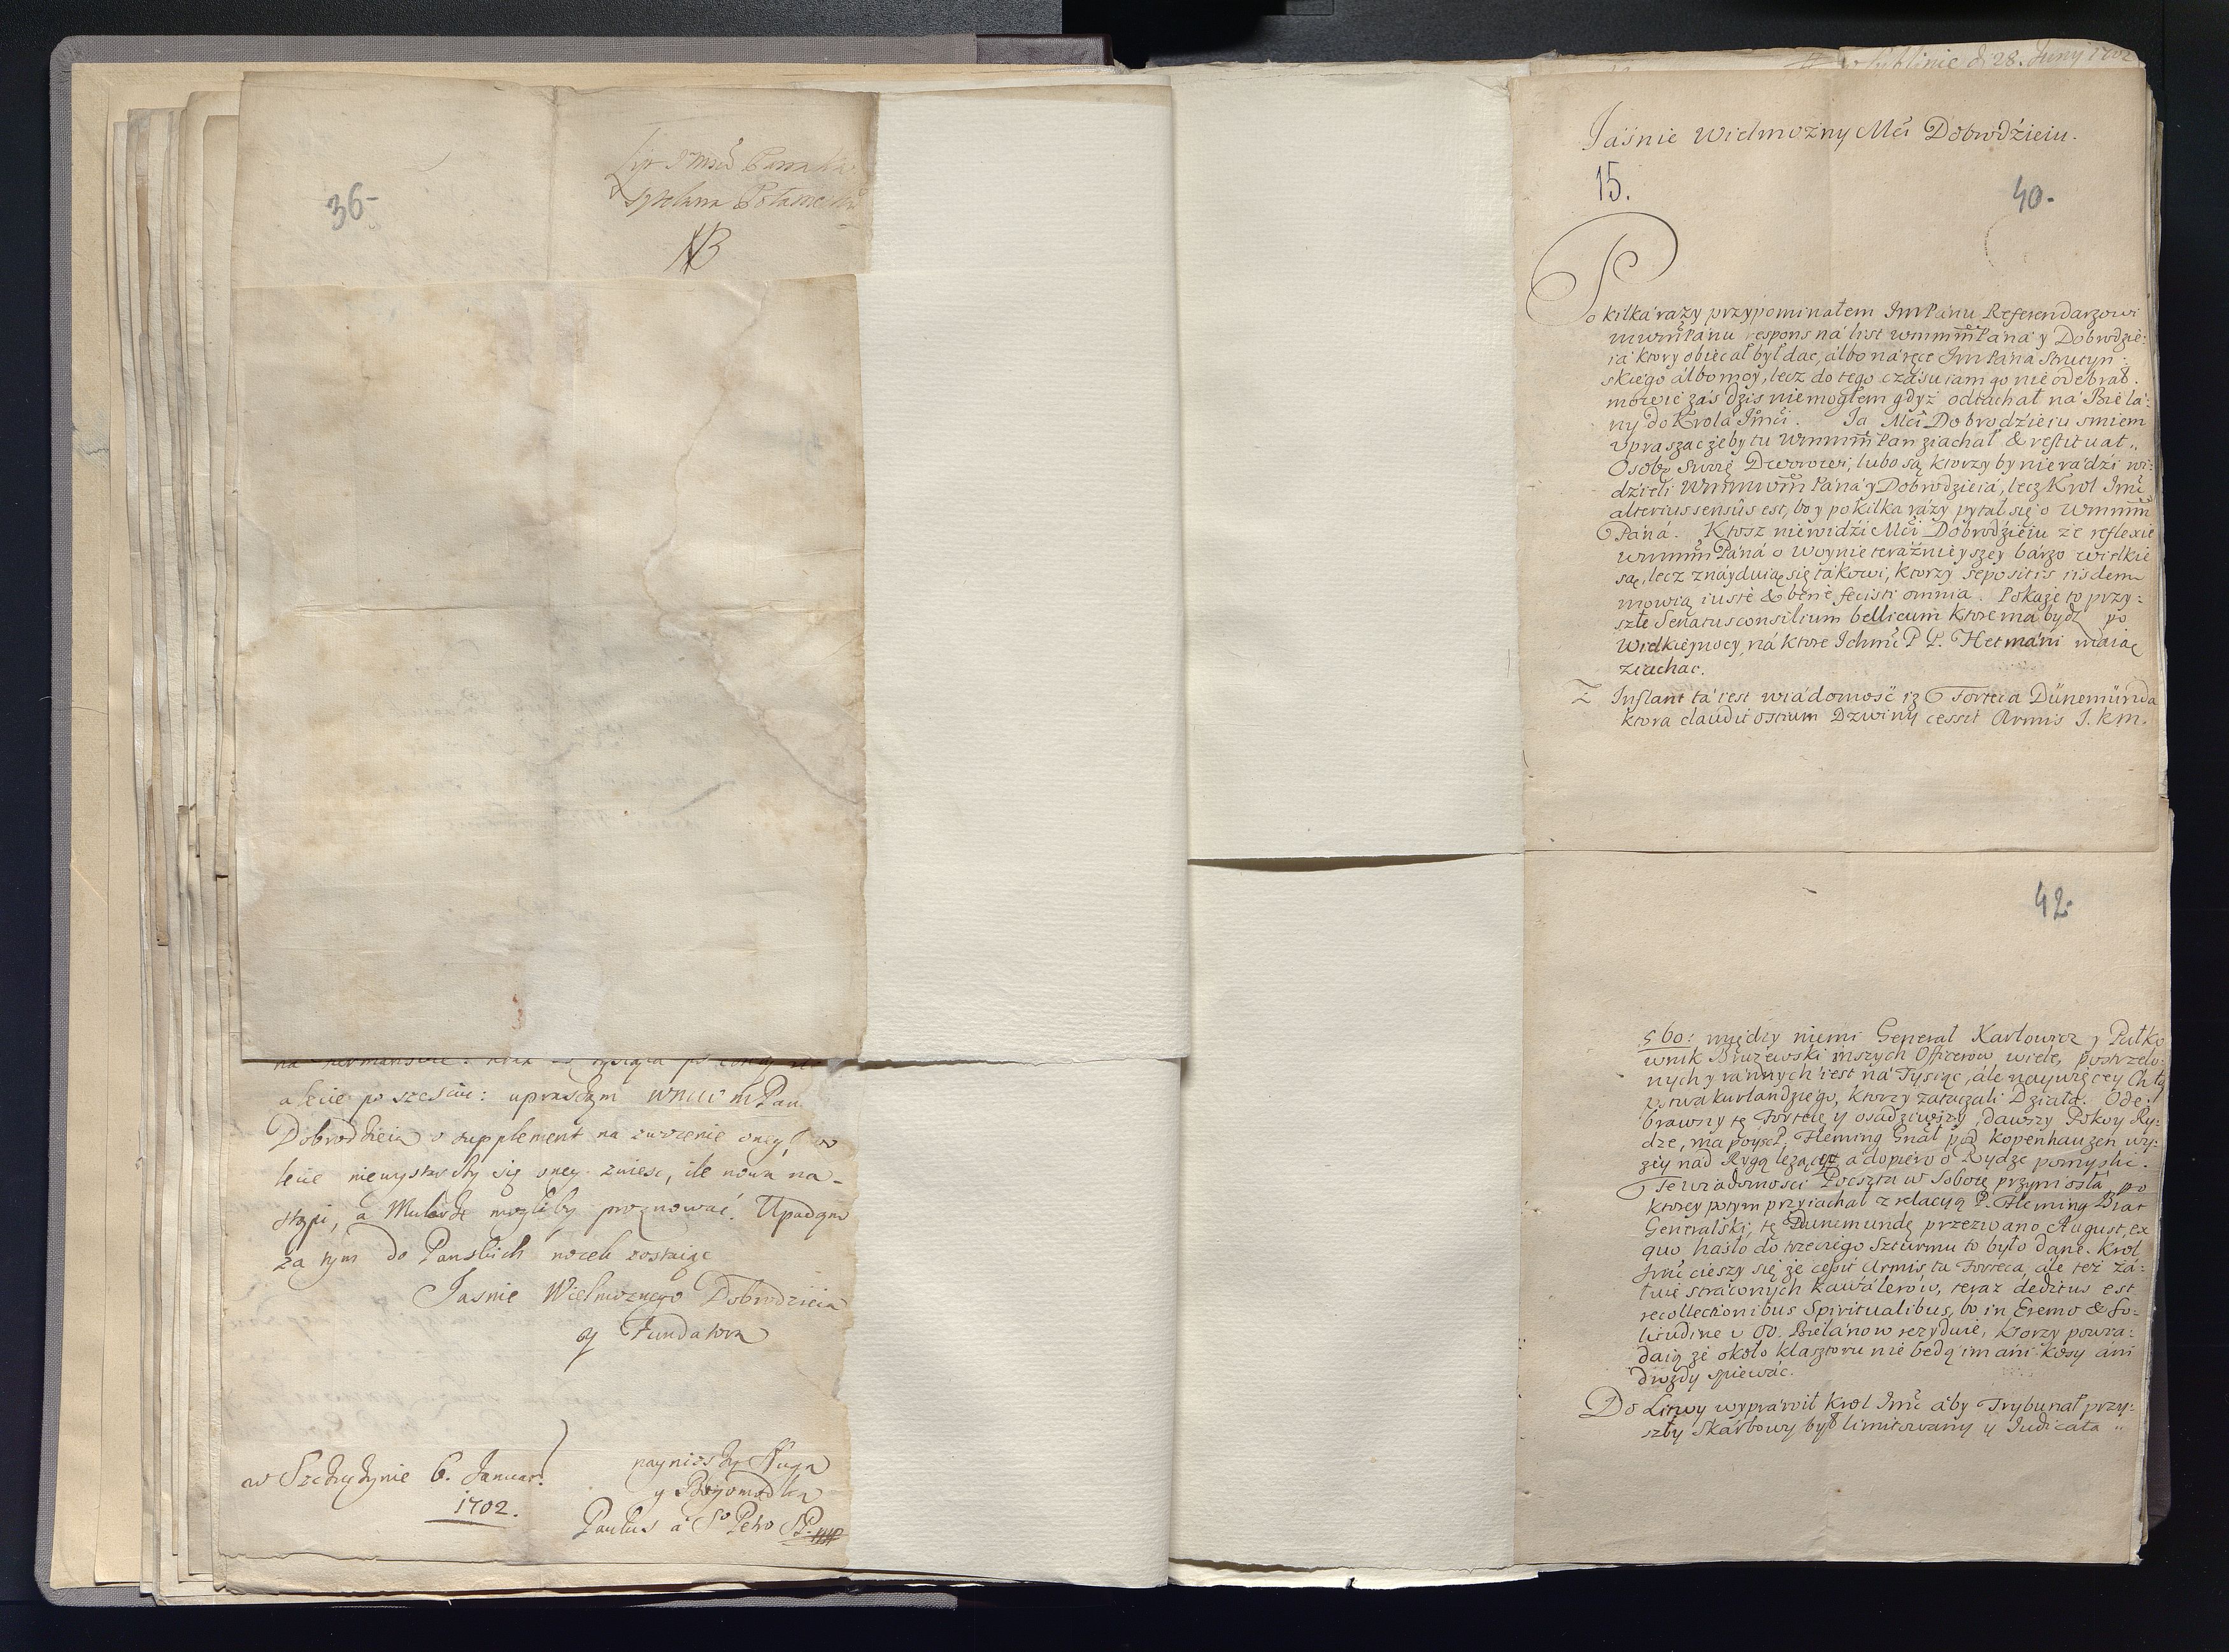 36-
List Jmści Pana Ka-
sztelana
NB
alecie po szesciu: upraszam WMMM Pana
Dobrodzieia o supplement na zwozenie oney,
lecie niewystarczy się oney zwiesc, ile nowa na-
stąpi, a Mularze mogliby proznować. Upadam
za tym do Panskich nozek zostaiąc
Jasnie Wielmoznego Dobrodzieia
y Fundatora
w Szczuczynie 6. Januar.
1702.
nayniszszy Sługa
y Bogomodlca
Paulus a S. Petro S.P.
w Lublinie d. 28. Juny 1702
Jáśnie Wielmożny Mći Dobrodźieiu.
15.
40.
Po kilká rázy przypominałem JmPánu Referendarzowi
mwmPánu respons ná list wmmmPáná y Dobrodźie:
iá ktory obiecał był dać, álbo ná ręce Jm Páná
skiego álbo moy, lecz do tego czásu iam go nie odebrał.
mowić záś dźis niemogłem gdyż odiáchał ná Bielá:
ny do Krolá Jmći. Ja Mći Dobrodźieiu smiem
upraszać żeby tu WmmmPan ziáchał & restituat
Osobę swoię Dworowi, lubo są ktorzyby nierádźi wi:
dźieli Wmmwm Páná y Dobrodźieiá, lecz Krol Jmć
alterius sensûs est, bo y po kilká rázy pytał się o Wmmm
Páná. Ktosz niewidźi Mći Dobrodźieiu że reflexie
wmmm Páná o Woynie teráźnieyszey bárzo wielkie
są, lecz znáyduią się tákowi, ktorzy sepositis iisdem
mowią iustè & benè fecisti omnia. Pokaże to przy:
szłe Senatusconsilium bellicum ktore ma bydź po
Wielkieynocy, ná ktore Ichmć P P. Hetmáni máią
ziáchać.
Z Inflant tá iest wiádomość iż Forteca Dünemünda
ktora claudit ostium Dzwiny cessit Armis J. k m.
42.
560: między niemi Generał Karłowicz y Pułko
wnik inszych Officerow wiele, postrzelo:
nych y ránnych iest ná Tyśiąc, ále naywięcey Chło
pstwa kurlandzkiego, ktorzy zátaczáli Dźiáłá. Ode:
brawszy tę Fortecę y osádźiwszy, dawszy Pokoy Ry:
dze, ma poyść Fleming Gnał pod Kopenhauzen wy:
żey nad Rygą leżącą a dopiero o Rydze pomyśli.
Te wiadomości Poczta w Sobotę przyniosłá, po
ktorey potym przyiáchał z relacyą P. Fleming Brat
Generalski, tę Dunemundę przezwano August, ex
quo hasło do trzeciego Szturmu to było dáne. Krol
Jmć cieszy się że cessit Armis tá Forteca, ále też żá:
łuie stráconych Kawálerow, teraz deditus est
recollectionibus Spiritualibus, bo in Eremo & So:
litudine u OO. Bielánow rezyduie, ktorzy powia:
dáią że około klasztoru nie będą im áni kosy áni
drozdy śpiewáć.
Do Litwy wypráwił Krol Jmć áby Trybunał przy:
szły Skárbowy był limitowány y Judicata